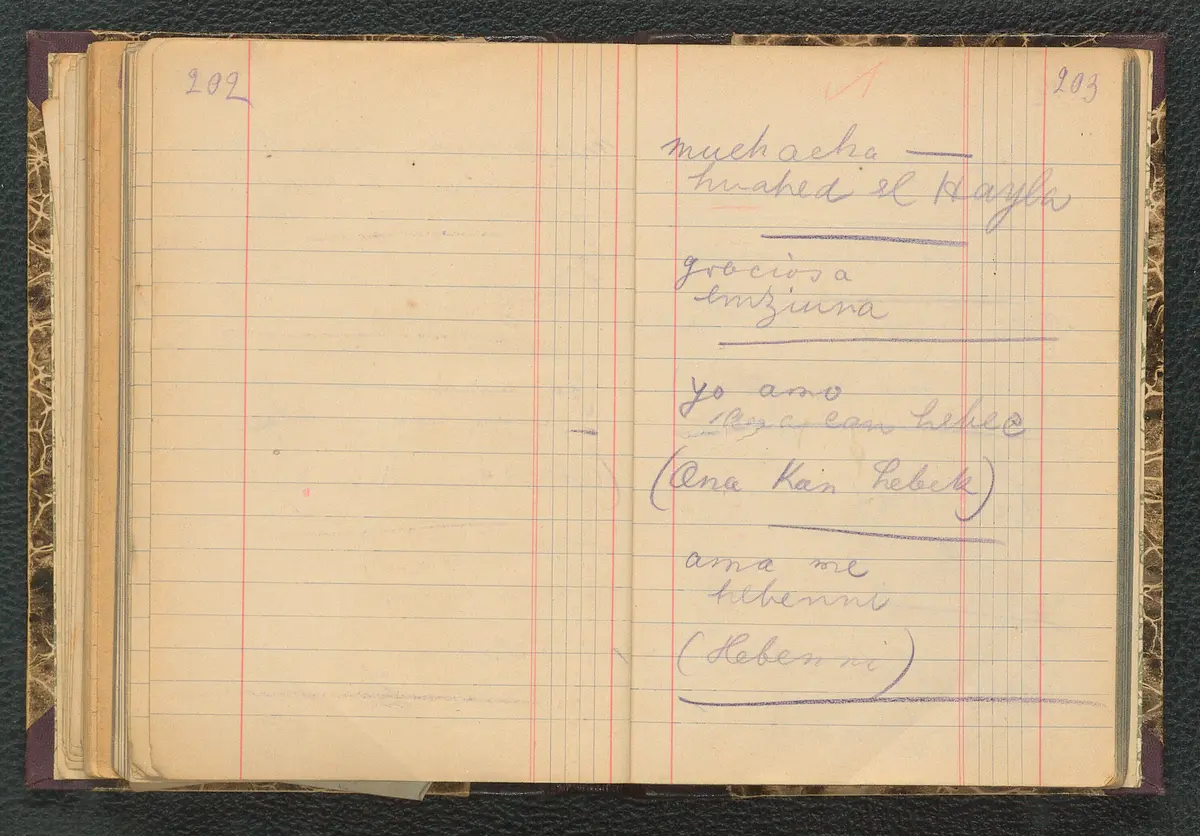 202
203
muchacha —
huahed el Hayla
graciosa
emziuna
yo amo
ana can hebec
(Ana Kan hebek)
ama me
hebenni
(Hebenni)